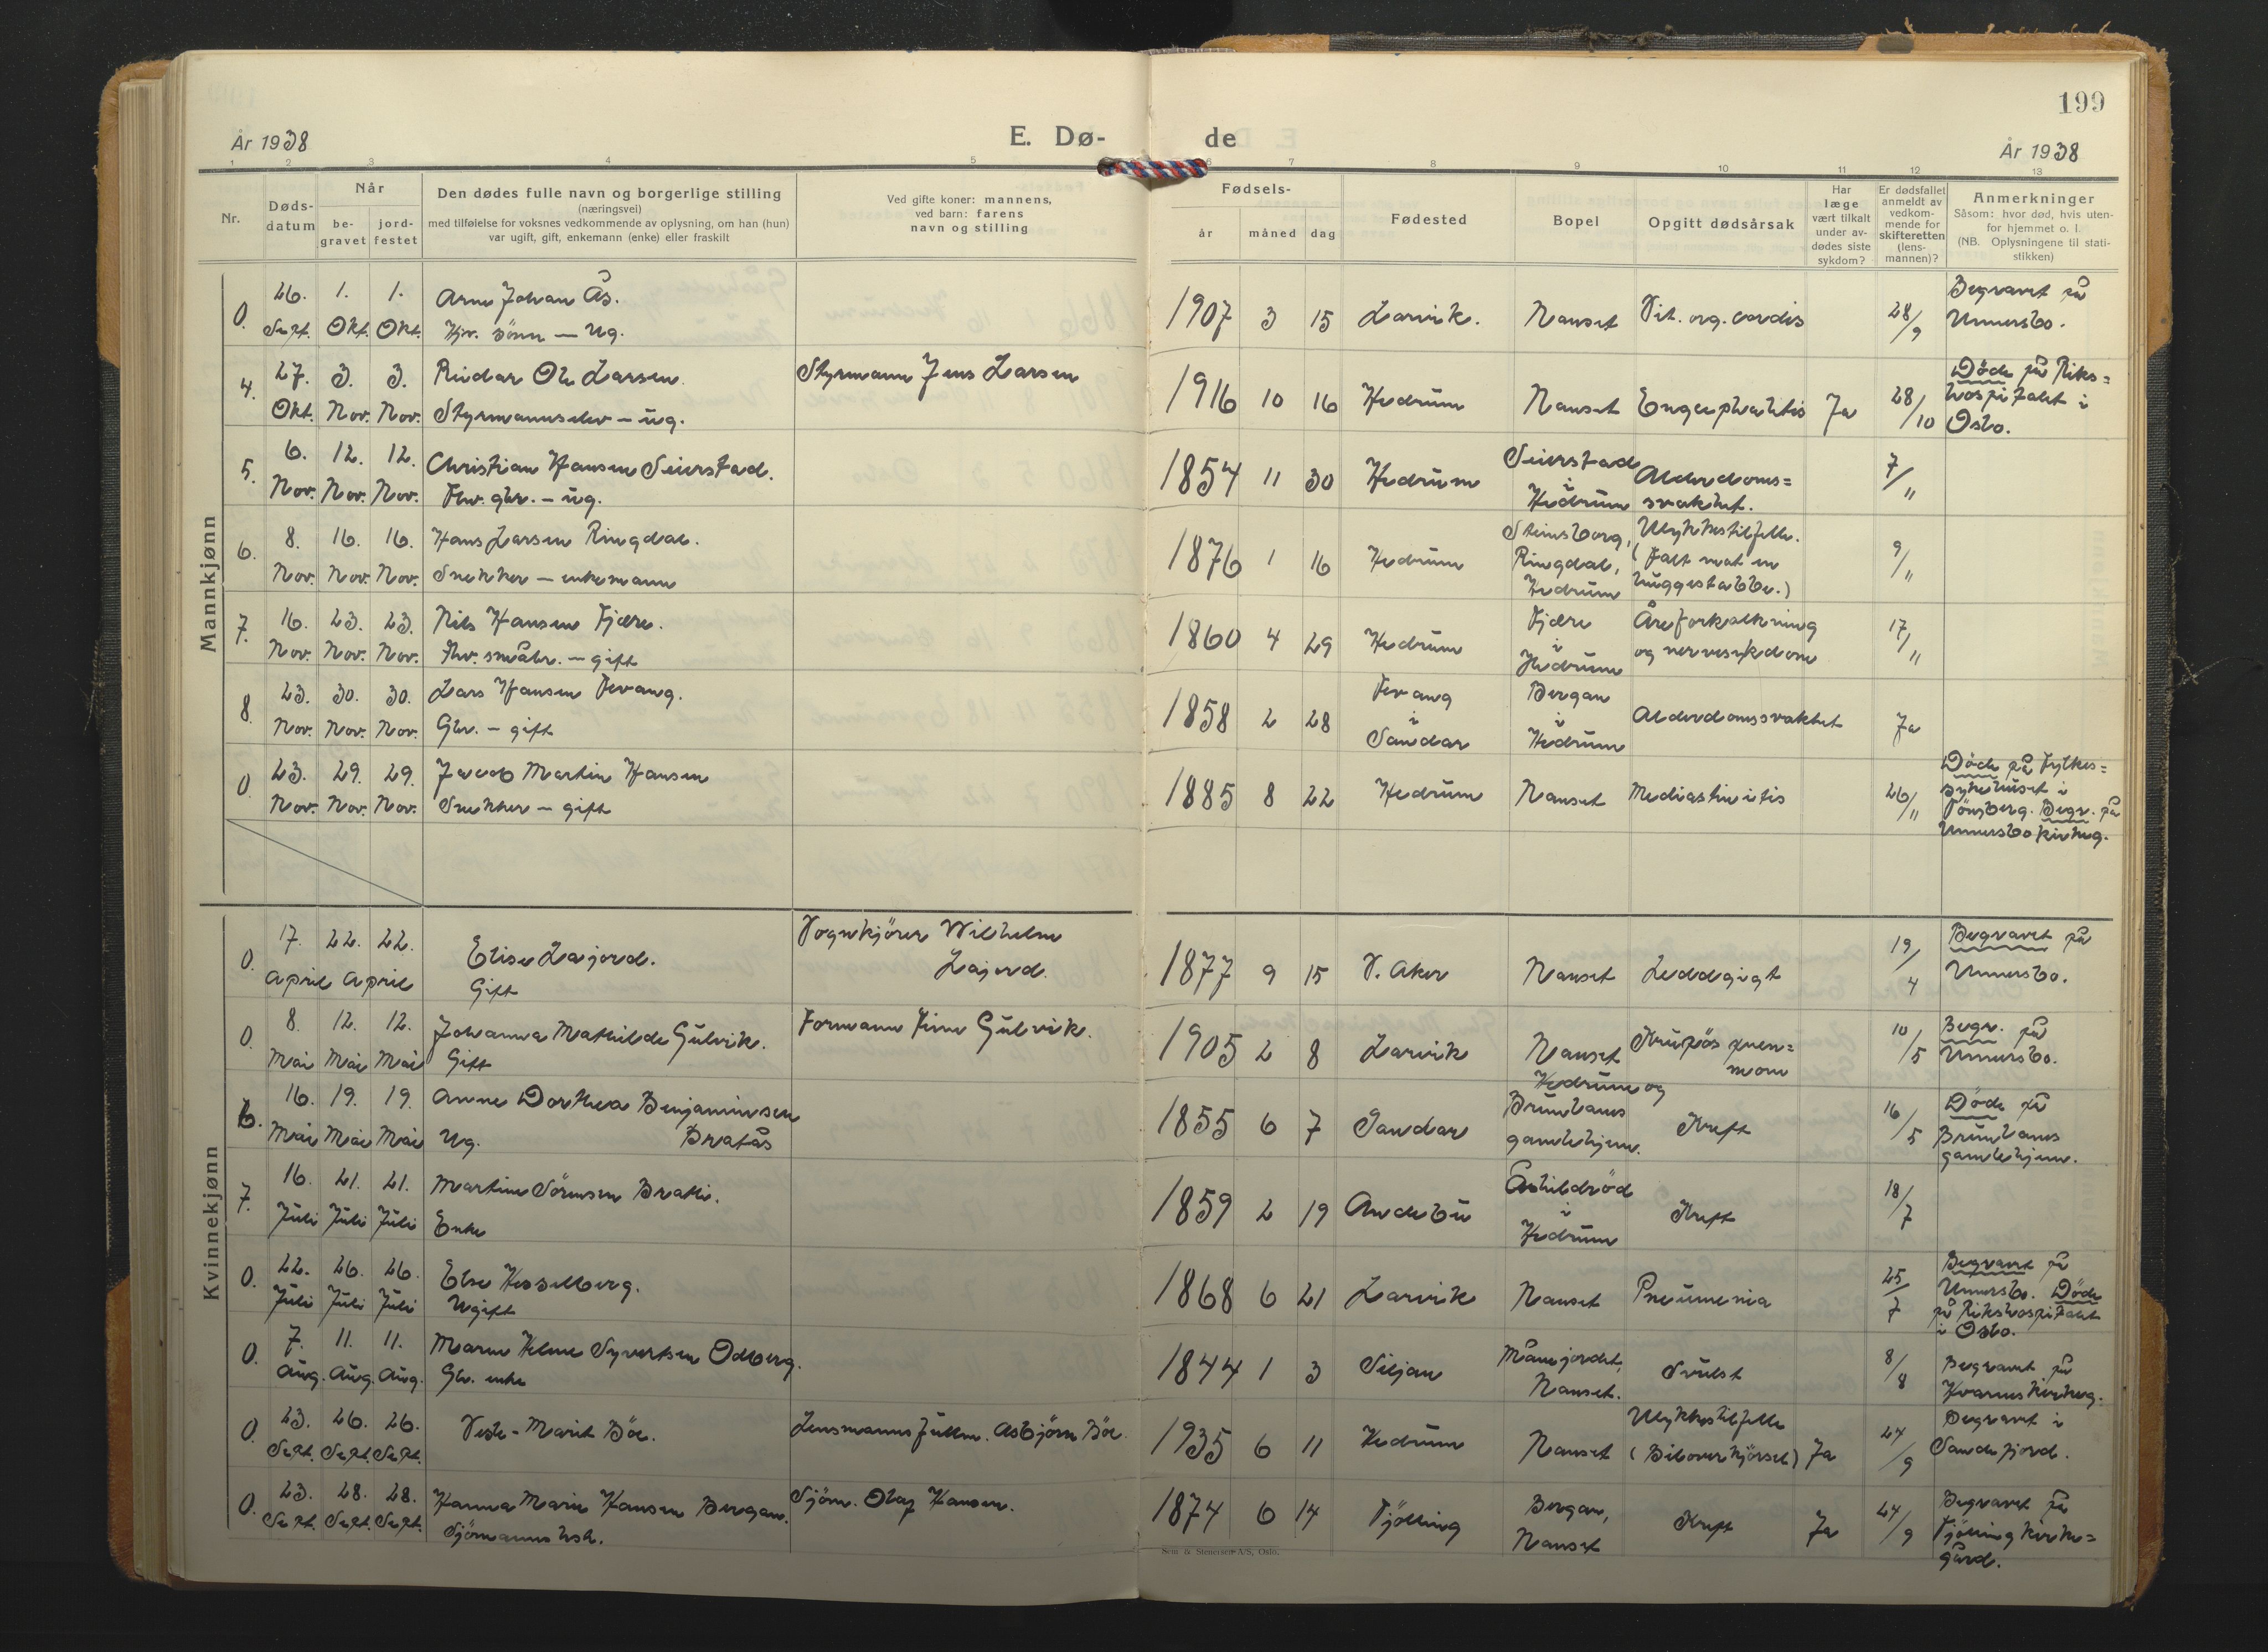 199
År 1938
E. Dø-
de
År 1938
1 2 3 4 5 6 7 8 9 10 11 12 13
Nr.
Døds-
datum
Når
be-
gravet
jord-
festet
Den dødes fulle navn og borgerlige stilling
(næringsvei)
med tilføielse for voksnes vedkommende av oplysning, om han (hun)
var ugift, gift, enkemann (enke) eller fraskilt
Ved gifte koner: mannens,
ved barn: farens
navn og stilling
Fødsels-
år måned dag
Fødested
Bopel
Opgitt dødsårsak
Har
læge
vært tilkalt
under av-
dødes siste
sykdom?
Er dødsfallet
anmeldt av
vedkom-
mende for
skifteretten
(lens-
mannen)?
Anmerkninger
Såsom: hvor død, hvis uten-
for hjemmet o. l.
(NB. Oplysningene til stati-
stikken)
Mannkjønn
0. 26. 1. 1. Arne Johan Ås. 1907 3 15 Larvik. Nanset Vit. org. cordis 28/9 Begravet på
Sept. Okt. Okt. Hjv. sönn – ug. Undersbo.
4. 27. 3. 3. Reidar Ole Larsen. Styrmann Jens Larsen 1916 10 16 Hedrum Nanset Ja 28/10 Döde på Riks=
Okt. Nov. Nov. Styrmannselev – ug. hospitalet i
Oslo.
5. 6. 12. 12. Christian Hansen Seierstad. 1854 11 30 Hedrum Seierstad Alderdoms= 7/11
Nov. Nov. Nov. Fhv. gbr. – ug. i
Hedrum svakhet.
6. 8. 16. 16. Hans Larsen Ringdal. 1876 1 16 Hedrum Steinsborg, Ulykkestilfelle. 9/11
Nov. Nov. Nov. Snekker – enkemann Ringdal, (Falt mot en
Hedrum huggestabbe.)
7. 16. 23. 23. Nils Hansen Fjære. 1860 4 29 Hedrum Fjære Åreforkalkning 17/11
Nov. Nov. Nov. Fhv. småbr. – gift i og nervesykdom
Hedrum
8. 23. 30. 30. Lars Hansen Fevang. 1858 2 28 Fevang Bergan Alderdomssvakhet Ja
Nov. Nov. Nov. Gbr. – gift i i
Sandar Hedrum
0. 23. 29. 29. Jacob Martin Hansen 1885 8 22 Hedrum Nanset Mediastinitis 26/11 Döde på Fylkes=
Nov. Nov. Nov. Snekker – gift sykehuset i
Tönsberg. Begr. på
Undersbo kirkeg.
Kvinnekjønn
0. 17. 22. 22. Elise Lajord. Vognkjörer Wilhelm 1877 9 15 V. Aker Nanset Leddgigt 19/4 Begravet på
April April Gift Lajord. Undersbo.
0. 8. 12. 12. Johanna Mathilde Gulvik. Formann Finn Gulvik. 1905 2 8 Larvik Nanset Krupös pnen= 10/5 Begr. på
Mai Mai Mai Gift moni Undersbo.
6. 16. 19. 19. Anne Dorthea Benjaminsen 1855 6 7 Sandar Hedrum og Kreft 16/5 Döde på
Mai Mai Mai Ug. Bratås Brunlanes Brunlanes
gamlehjem. gamlehjem.
7. 16. 21. 21. Martine Sörensen Bratli. 1859 2 19 Andebu Askildröd Kreft 18/7
Juli Juli Juli Enke i
Hedrum
0. 22. 26. 26. Else Hesselberg. 1868 6 21 Larvik Nanset Pneumonia 25/7 Begravet på
Juli Juli Juli Ugift Undersbo. Döde
på Rikshospitalet
i Oslo.
0. 7. 11. 11. Maren Helene Syvertsen Odberg. 1844 1 3 Siljan Månejordet, Svulst 8/8 Begravet på
Aug. Aug. Aug. Gbr. enke Nanset. Kvarnes kirkeg.
0. 23. 26. 26. Vesle-Marit Böe. Lensmannsfullm. Asbjörn Böe 1935 6 11 Hedrum Nanset Ulykkestilfelle Ja 24/9 Begravet i
Sept. Sept. Sept. (Biloverkjörsel) Sandefjord.
0. 23. 28. 28. Hanna Marie Hansen Bergan. Sjöm. Olaf Hansen. 1874 6 14 Tjölling Bergan, Kreft Ja 24/9 Begravet på
Sept. Sept. Sept. Sjömanns hsh. Nanset Tjölling kirke=
gård.
Sem & Stenersen A/S, Oslo.